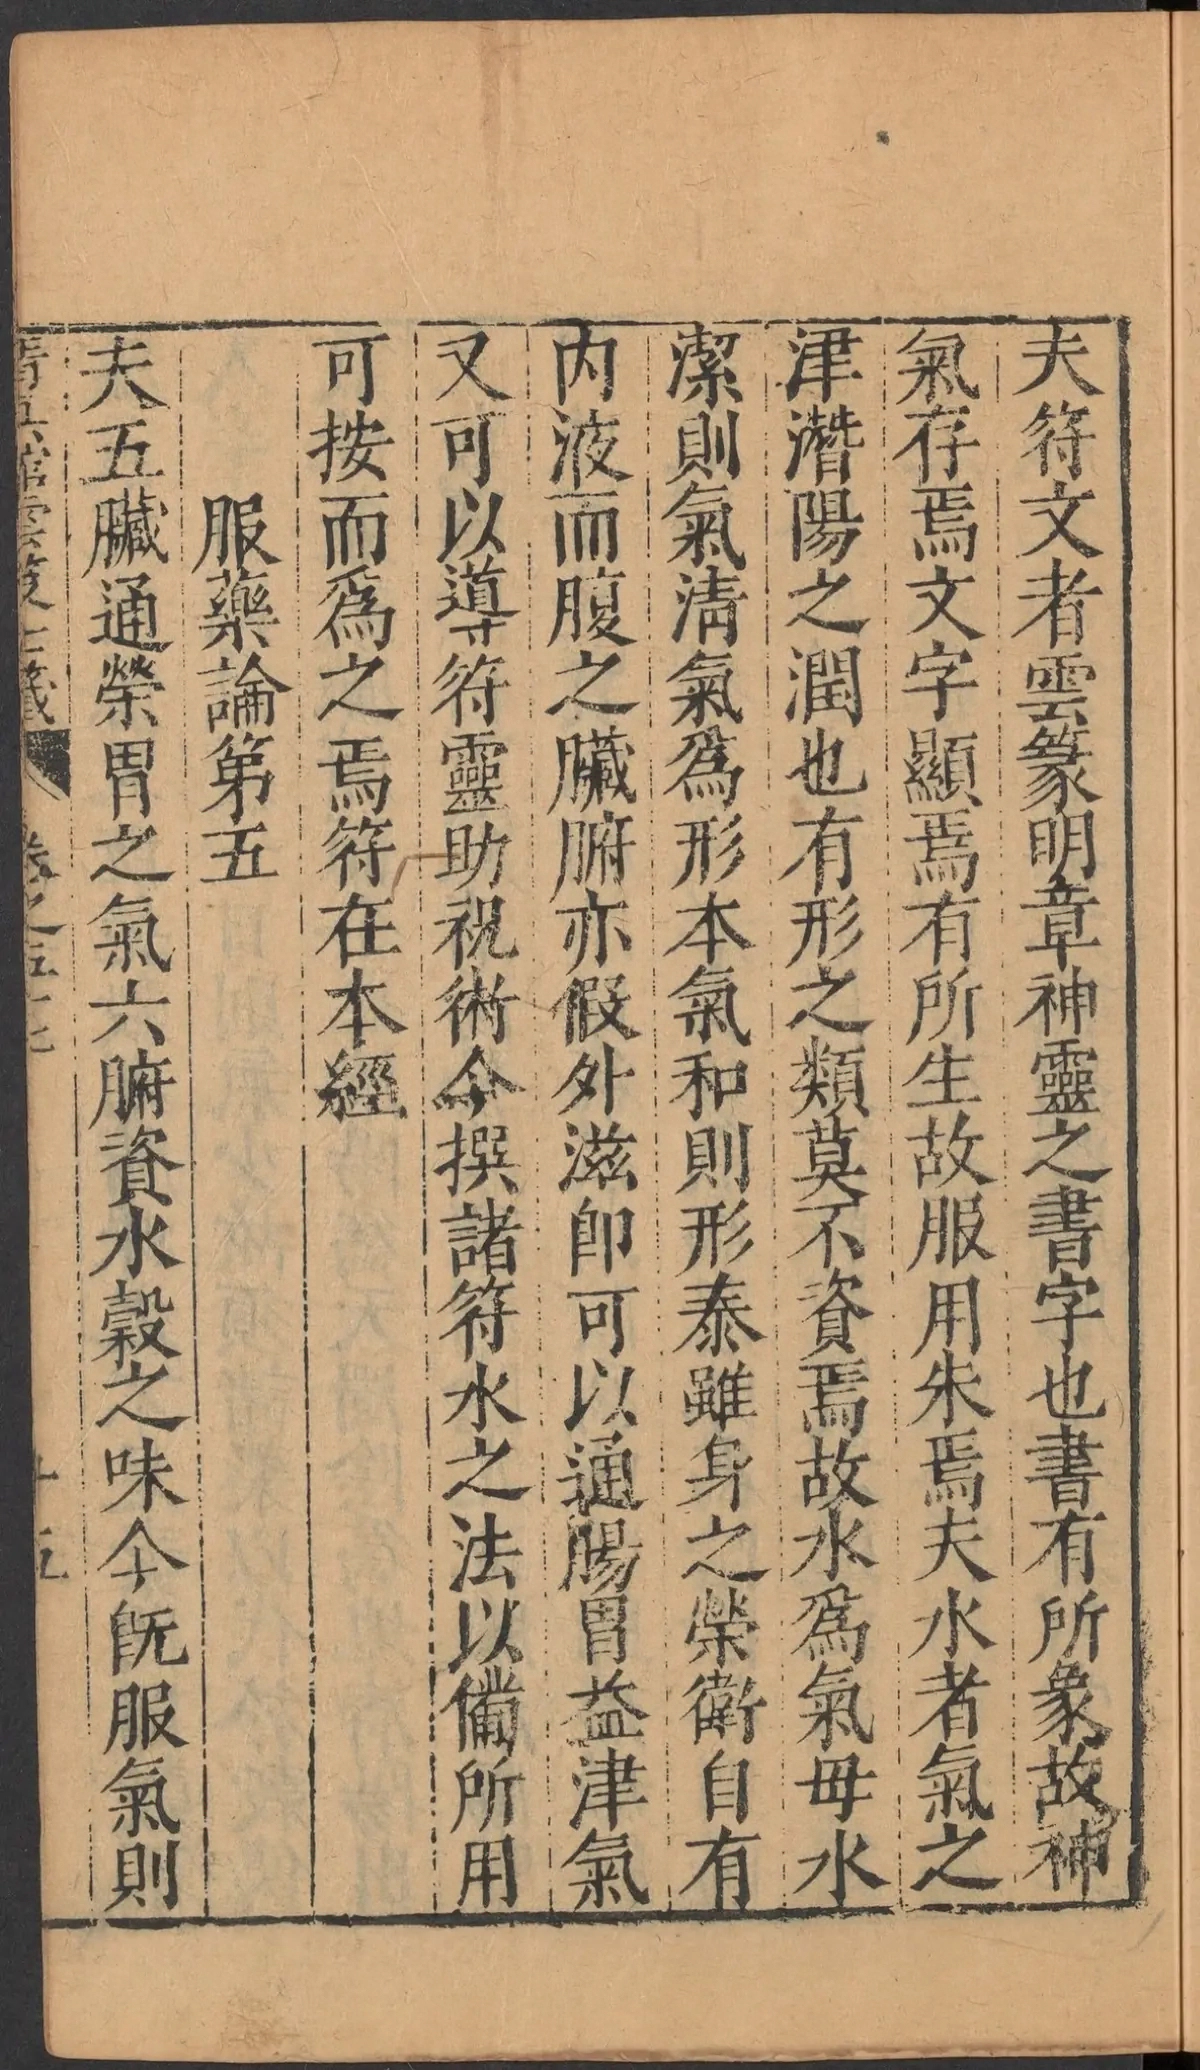 夫符文者雲篆明章神靈之書字也書有所象故神
氣存焉文字顯焉有所生故服用朱焉夫水者氣之
津潛陽之潤也有形之類莫不資焉故水爲氣母水
潔則氣淸氣爲形本氣和則形泰雖身之榮衛自有
内液而腹之臟腑亦假外滋即可以通腸胃益津氣
又可以導符靈助祝術今撰諸符水之法以備所用
可按而爲之焉符在本經
服藥論第五
夫五臟通榮胃之氣六腑資水穀之味今旣服氣則